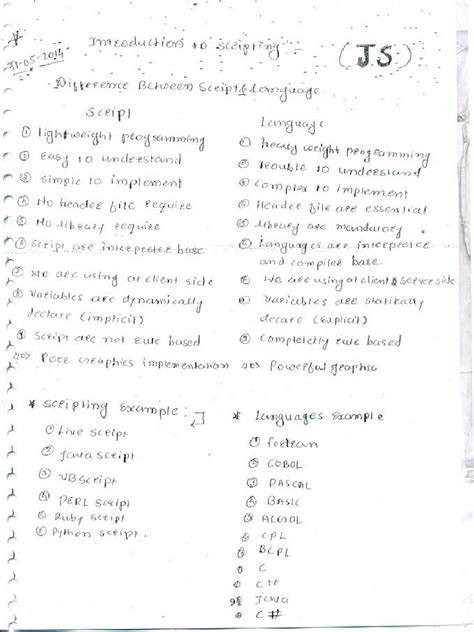 31-05-2014
Introduction to scripting - (JS)
Difference Between Script & Language
Script
① lightweight programming
② Easy to understand
③ Simple to implement
④ No header file require
⑤ No library require
⑥ Script are interpreter base
⑦ We are using at client side
⑧ Variables are dynamically
declare (implicit)
⑨ Script are not rule based
10) Poor Graphics implementation
Language
① heavy weight programming
② Trouble to understand
③ Complex to implement
④ Header file are essential
⑤ library are mandatory
⑥ Languages are interpreter
and compiler base.
⑦ We are using at client & server side
⑧ Variables are statically
declare (explicit)
⑨ Completely rule based
10) Powerful graphic
* Scripting Example :
① Live Script
② Java Script
③ VB Script
④ PERL Script
⑤ Ruby Script
⑥ Python Script.
* Languages Example
① fortran
② COBOL
③ PASCAL
④ BASIC
⑤ ALGOL
⑥ CPL
⑦ BCPL
⑧ C
C++
Java
C#